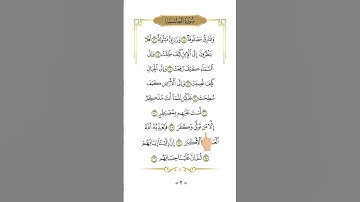 سورة الغاشية
وَنَمَارِقُ مَصْفُوفَةٌ ۝ وَزَرَابِيُّ مَبْثُوثَةٌ ۝ أَفَلَا
يَنظُرُونَ إِلَى الْإِبِلِ كَيْفَ خُلِقَتْ ۝ وَإِلَى
السَّمَاءِ كَيْفَ رُفِعَتْ ۝ وَإِلَى الْجِبَالِ
كَيْفَ نُصِبَتْ ۝ وَإِلَى الْأَرْضِ كَيْفَ
سُطِحَتْ ۝ فَذَكِّرْ إِنَّمَا أَنتَ مُذَكِّرٌ
۝ لَّسْتَ عَلَيْهِم بِمُصَيْطِرٍ ۝
إِلَّا مَن تَوَلَّىٰ وَكَفَرَ ۝ فَيُعَذِّبُهُ اللَّهُ
الْعَذَابَ الْأَكْبَرَ ۝ إِنَّ إِلَيْنَا إِيَابَهُمْ
۝ ثُمَّ إِنَّ عَلَيْنَا حِسَابَهُم ۝
«٢»